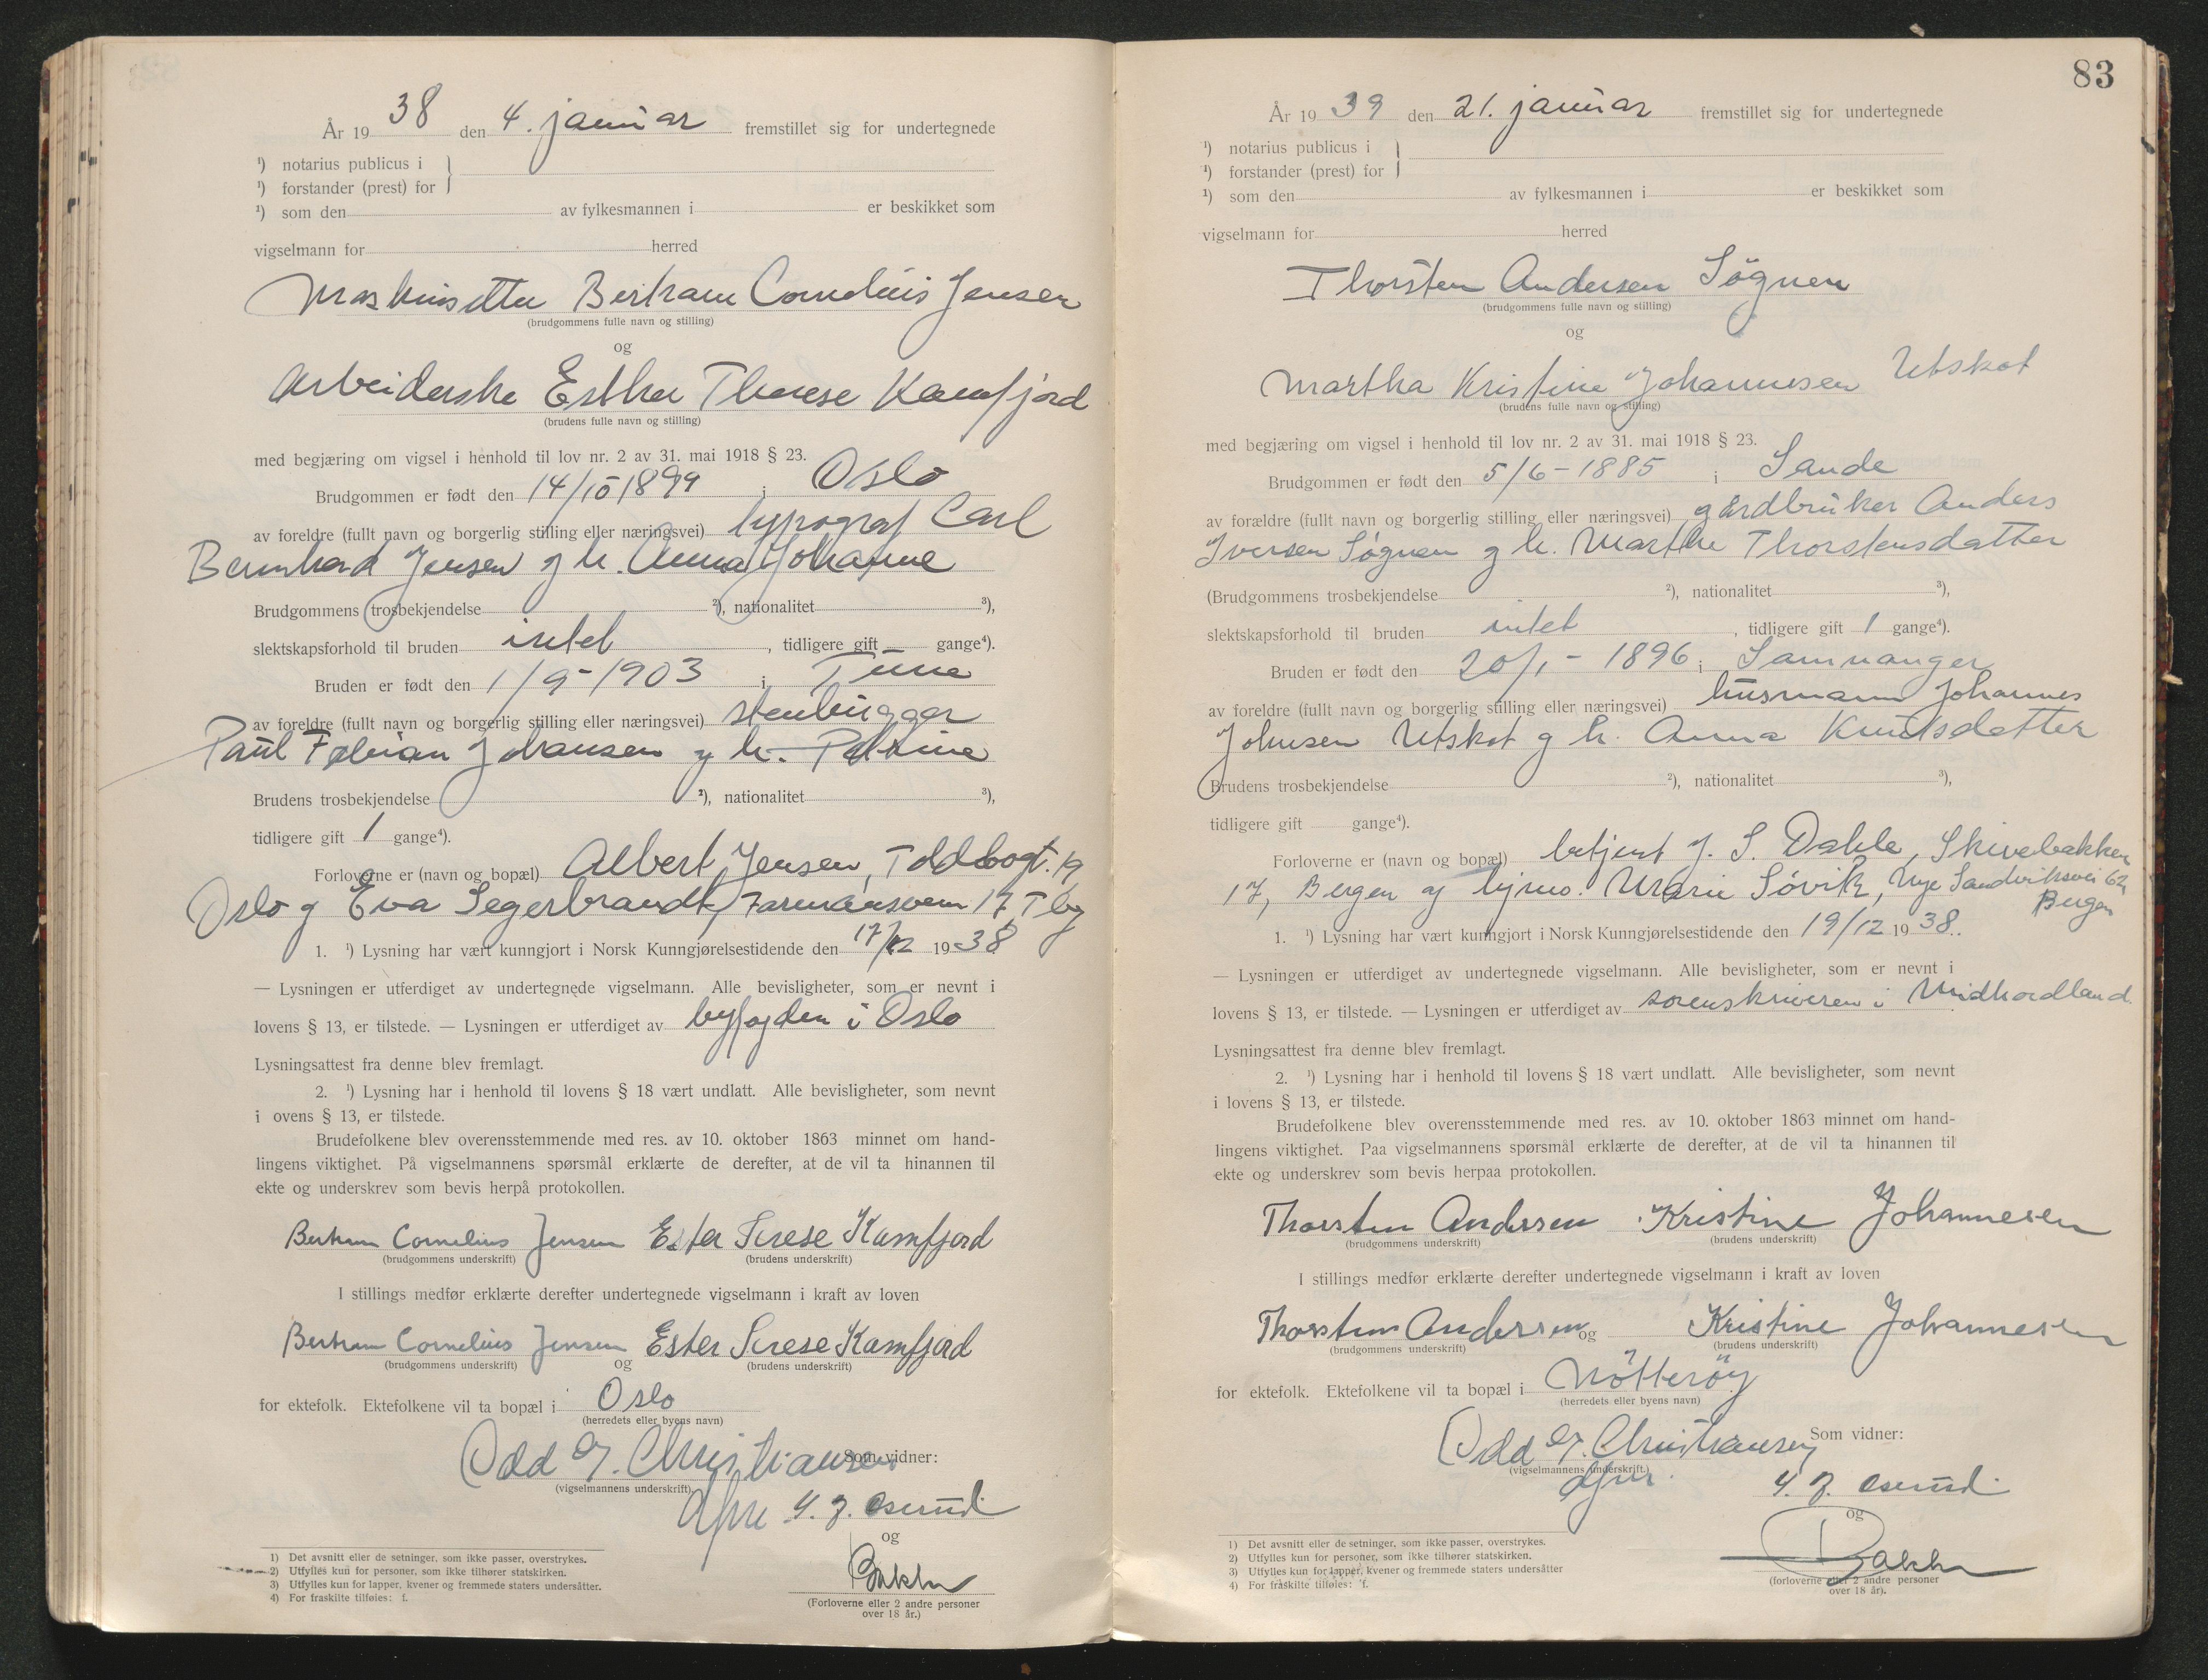 År 19 38 den 4. januar fremstillet sig for undertegnede
¹) notarius publicus i
¹) forstander (prest) for
¹) som den av fylkesmannen i er beskikket som
vigselmann for herred
Maskinsetter Bertram Cornelius Jensen
(brudgommens fulle navn og stilling)
og
Arbeiderske Esther Therese Kamfjord
(brudens fulle navn og stilling)
med begjæring om vigsel i henhold til lov nr. 2 av 31. mai 1918 § 23.
Brudgommen er født den 14/10 1899 i Oslo
av foreldre (fullt navn og borgerlig stilling eller næringsvei) typograf Carl
Bernhard Jensen og h. Anna Johanne
Brudgommens trosbekjendelse ²), nationalitet ³),
slektskapsforhold til bruden intet , tidligere gift — gange⁴).
Bruden er født den 1/9 - 1903 i Tune
av foreldre (fullt navn og borgerlig stilling eller næringsvei) stenhugger
Paul Fabian Johansen og h. Petrine
Brudens trosbekjendelse ²), nationalitet ³),
tidligere gift 1 gange⁴).
Forloverne er (navn og bopæl) Albert Jensen, Toldbogt. 19
Oslo og Eva Segerbrandt, Farmannsveien 17 Tbg
1. ¹) Lysning har vært kunngjort i Norsk Kunngjørelsestidende den 17/12 19 38
— Lysningen er utferdiget av undertegnede vigselmann. Alle bevisligheter, som er nevnt i
lovens § 13, er tilstede. — Lysningen er utferdiget av byfogden i Oslo
Lysningsattest fra denne blev fremlagt.
2. ¹) Lysning har i henhold til lovens § 18 vært undlatt. Alle bevisligheter, som nevnt
i ovens § 13, er tilstede.
Brudefolkene blev overensstemmende med res. av 10. oktober 1863 minnet om hand-
lingens viktighet. På vigselmannens spørsmål erklærte de derefter, at de vil ta hinannen til
ekte og underskrev som bevis herpå protokollen.
Bertram Cornelius Jensen Ester Terese Kamfjord
(brudgommens underskrift) (brudens underskrift)
I stillings medfør erklærte derefter undertegnede vigselmann i kraft av loven
Bertram Cornelius Jensen og Ester Terese Kamfjord
(brudgommens underskrift) (brudens underskrift)
for ektefolk. Ektefolkene vil ta bopæl i Oslo
(herredets eller byens navn)
Odd G. Christiansen Som vidner:
(vigselmannens underskrift)
dfm Y. J. Oserud
og
Bakke
(Forloverne eller 2 andre personer
over 18 år.)
1) Det avsnitt eller de setninger, som ikke passer, overstrykes.
2) Utfylles kun for personer, som ikke tilhører statskirken.
3) Utfylles kun for lapper, kvener og fremmede staters undersåtter.
4) For fraskilte tilføies: f.
83
År 19 39 den 21. januar fremstillet sig for undertegnede
¹) notarius publicus i
¹) forstander (prest) for
¹) som den av fylkesmannen i er beskikket som
vigselmann for herred
Thorsten Andersen Sögnen
(brudgommens fulle navn og stilling)
og
Martha Kristine Johannesen Utskot
(brudens fulle navn og stilling)
med begjæring om vigsel i henhold til lov nr. 2 av 31. mai 1918 § 23.
Brudgommen er født den 5/6 - 1885 i Sande
av forældre (fullt navn og borgerlig stilling eller næringsvei) gårdbruker Anders
Iversen Sögnen og h. Marthe Thorstensdatter
(Brudgommens trosbekjendelse ²), nationalitet ³),
slektskapsforhold til bruden intet , tidligere gift 1 gange⁴).
Bruden er født den 20/1 - 1896 i Samnanger
av foreldre (fullt navn og borgerlig stilling eller næringsvei) husmann Johannes
Johnsen Utskot og h. Anna Knutsdatter
Brudens trosbekjendelse ²), nationalitet ³),
tidligere gift gange⁴).
Forloverne er (navn og bopæl) betjent J. S. Dahle, Skivebakken
17, Bergen og hjmo. Marie Sövik, Nye Sandviksvei 62
Bergen
1. ¹) Lysning har vært kunngjort i Norsk Kunngjørelsestidende den 19/12 19 38.
— Lysningen er utferdiget av undertegnede vigselmann. Alle bevisligheter, som er nevnt i
lovens § 13, er tilstede. — Lysningen er utferdiget av sorenskriveren i Midhordland.
Lysningsattest fra denne blev fremlagt.
2. ¹) Lysning har i henhold til lovens § 18 vært undlatt. Alle bevisligheter, som nevnt
i lovens § 13, er tilstede.
Brudefolkene blev overensstemmende med res. av 10. oktober 1863 minnet om hand-
lingens viktighet. Paa vigselmannens spørsmål erklærte de derefter, at de vil ta hinannen til
ekte og underskrev som bevis herpaa protokollen.
Thorsten Andersen Kristine Johannesen
(brudgommens underskrift) (brudens underskrift)
I stillings medfør erklærte derefter undertegnede vigselmann i kraft av loven
Thorsten Andersen og Kristine Johannesen
(brudgommens underskrift) (brudens underskrift)
for ektefolk. Ektefolkene vil ta bopæl i Nötteröy
(herredets eller byens navn)
Odd G. Christiansen Som vidner:
(vigselmannens underskrift.)
dfm. Y. J. Oserud
og
Bakke
(forloverne eller 2 andre personer
over 18 år).
1) Det avsnitt eller de setninger, som ikke passer, overstrykes.
2) Utfylles kun for personer, som ikke tilhører statskirken.
3) Utfylles kun for lapper, kvener og fremmede staters undersåtter
4) For fraskilte tilføles: f.